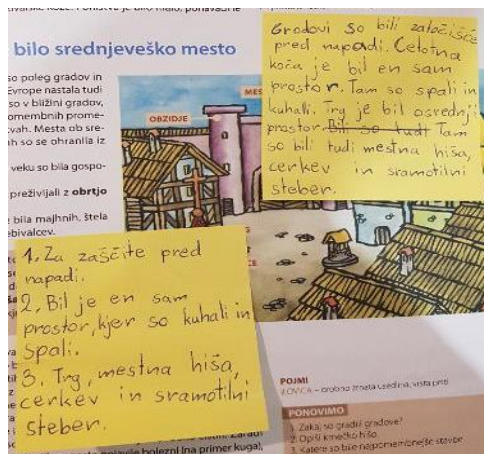 bilo srednjeveško mesto
so poleg gradov in
Evrope nastala tudi
so v bližini gradov,
pomembnih prome-
vah. Mesta ob sre-
so se ohranila iz
veku so bila gospo-
preživljali z obrtjo
bila majhnih, štela
ebivalcev.
OBZIDJE
Gradovi so bili zatočišče
pred napadi. Celotna
koča je bil en sam
prostor. Tam so spali in
kuhali. Trg je bil osrednji
prostor. Bili so tudi Tam
so bili tudi mestna hiša,
cerkev in sramotilni
steber.
1. Za zaščite pred
napadi.
2. Bil je en sam
prostor, kjer so kuhali in
spali.
3. Trg, mestna hiša,
cerkev in sramotilni
steber.
bolezni (na primer kuga),
POJMI
ILOVICA – drobno zrnata usedlina, vrsta prsti
PONOVIMO
1. Zakaj so gradili gradove?
2. Opiši kmečko hišo.
3. Katere so bile najpomembnejše stavbe